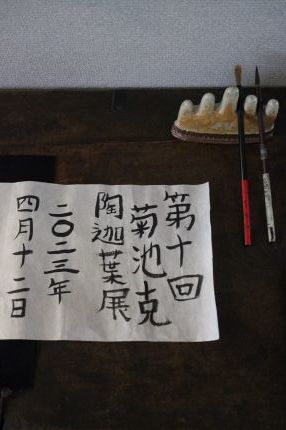 第十回
菊池克
陶迦葉展
二〇二三年
四月十二日